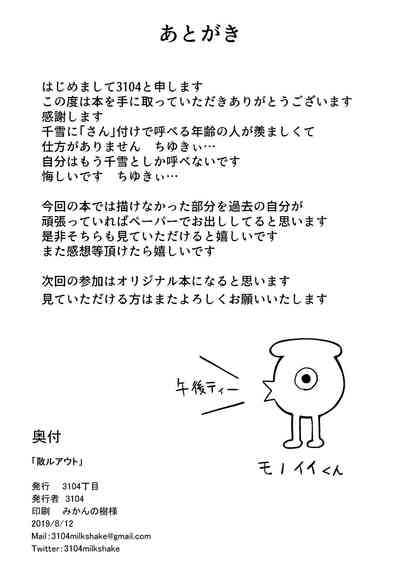 あとがき
はじめまして3104と申します
この度は本を手に取っていただきありがとうございます
感謝します
千雪に「さん」付けで呼べる年齢の人が羨ましくて
仕方がありません　ちゆきぃ…
自分はもう千雪としか呼べないです
悔しいです　ちゆきぃ…
今回の本では描けなかった部分を過去の自分が
頑張っていればペーパーでお出ししてると思います
是非そちらも見ていただけると嬉しいです
また感想等頂けたら嬉しいです
次回の参加はオリジナル本になると思います
見ていただける方はまたよろしくお願いいたします
午後ティー
モノイイくん
奥付
「散ルアウト」
発行　3104丁目
発行者　3104
印刷　みかんの樹様
2019/8/12
Mail：3104milkshake@gmail.com
Twitter：3104milkshake